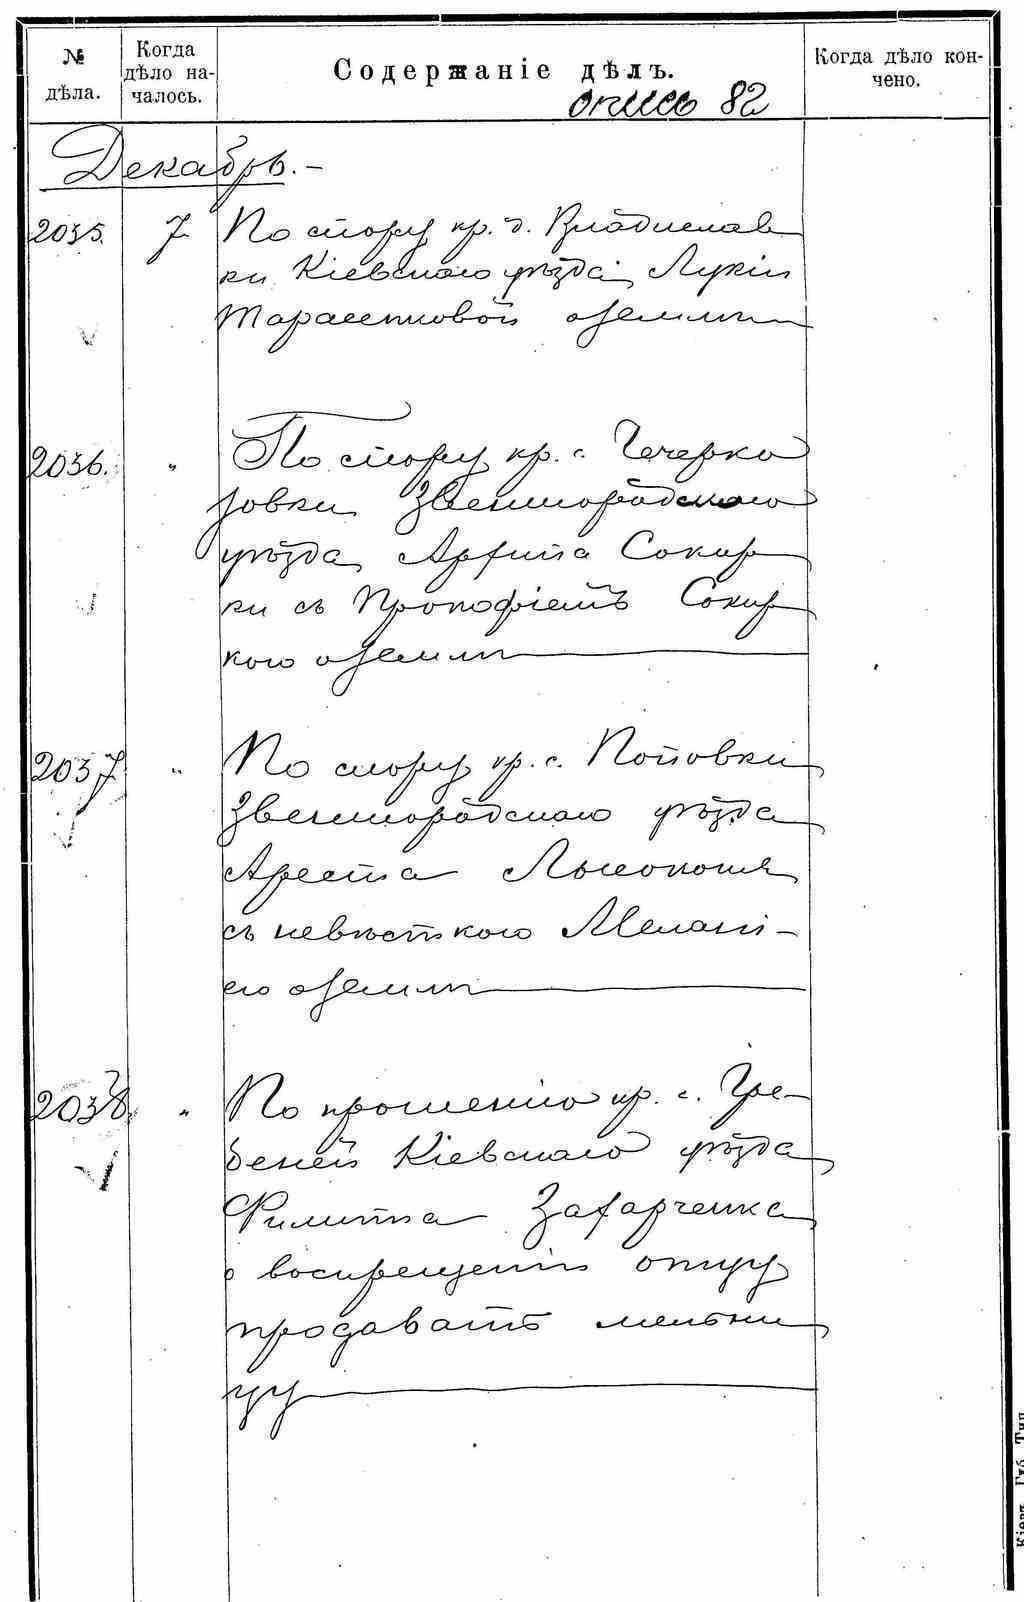 № дѣла.
Когда дѣло на-чалось.
Содержаніе дѣлъ.
Когда дѣло кон-чено.
опись 82
Декабрь. -
2035. 7 По спору кр. д. Владислав
ки Кіевскаго уѣзда Лукіи
Тарасенковой о землѣ
2036. " По спору кр. с. Чечерко
зовки Звенигородскаго
уѣзда Архипа Сокир
ки съ Прокофіемъ Сокир
кою о землѣ
2037 " По спору кр. с. Поповки
Звенигородскаго уѣзда
Ареста Лысоконя
съ невѣсткою Мелані-
ею о землѣ
2038. " По прошенію кр. с. Гре-
беней Кіевскаго уѣзда
Филипа Захарченка
о воспрещеніи отцу
продавать мельни
цу
Кіевъ. Губ. Тип.